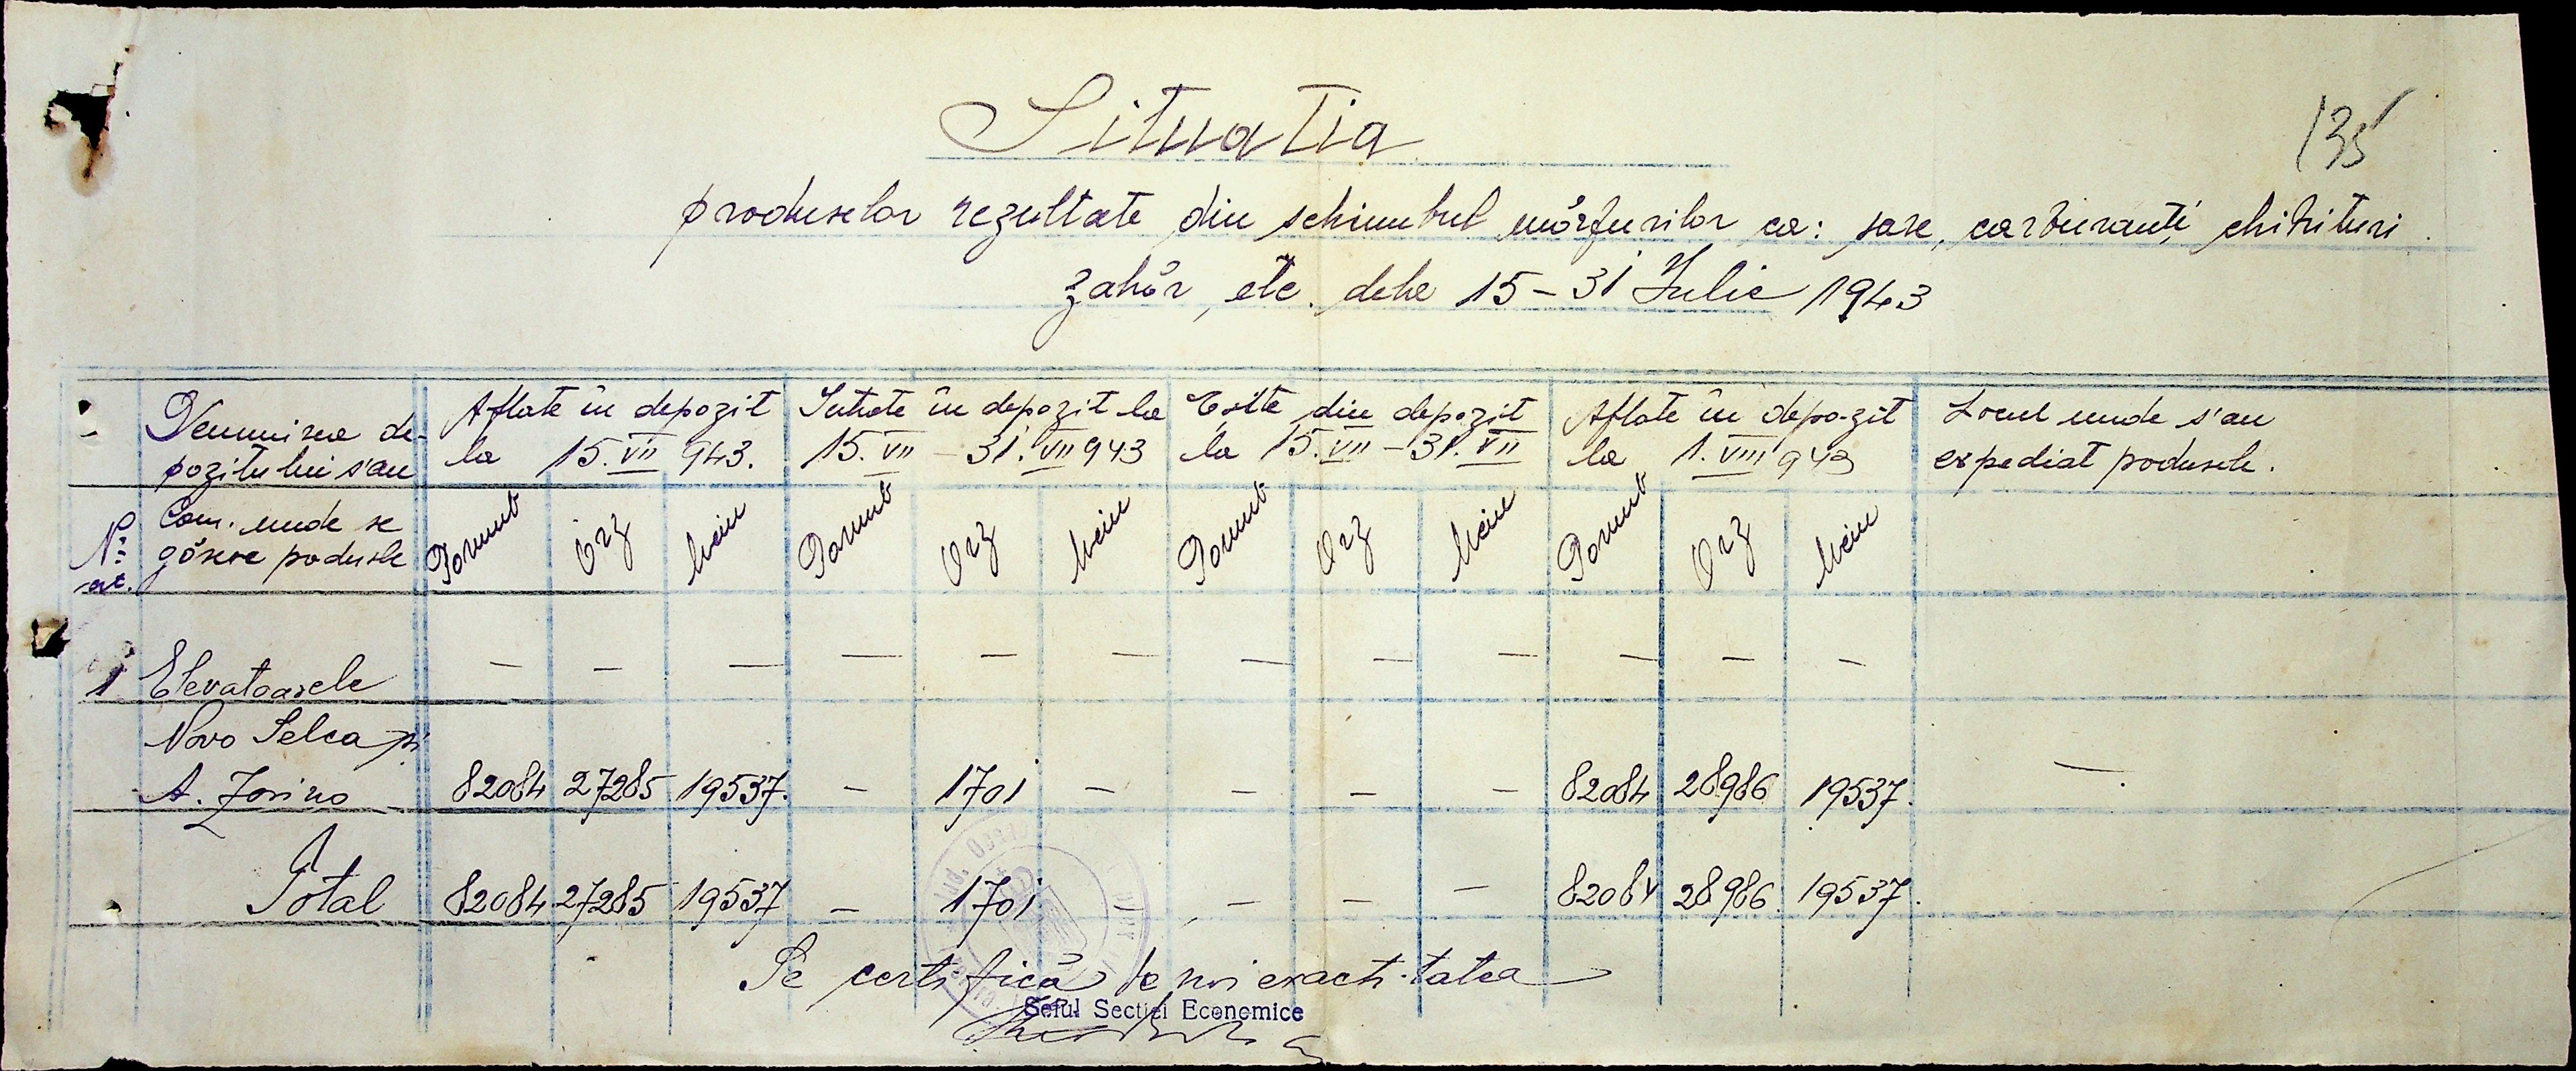 Situatia
135
produselor rezultate din schimbul mărfurilor ca: sare, carburanți chibrituri
zahăr, etc. dela 15-31 Iulie 1943
Denumirea de-
pozitului s'au
Com. unde se
găsesc produsele
No
crt.
Aflate în depozit
la 15.VII 943.
Intrate în depozit la
15.VII - 31.VII 943
Eșite din depozit
la 15.VII - 31.VII
Aflate în depozit
la 1.VIII 943
Locul unde s'au
expediat produsele.
Porumb Orz Meiu Porumb Orz Meiu Porumb Orz Meiu Porumb Orz Meiu
1 Elevatoarele — — — — — — — — — — — —
Novo Selca și
A. Zorino 82084 27285 19537. — 1701 — — — — 82084 28986 19537. —
Total 82084 27285 19537 — 1701 — — — 82084 28986 19537.
Se certifică de noi exactitatea
Șeful Secției Economice